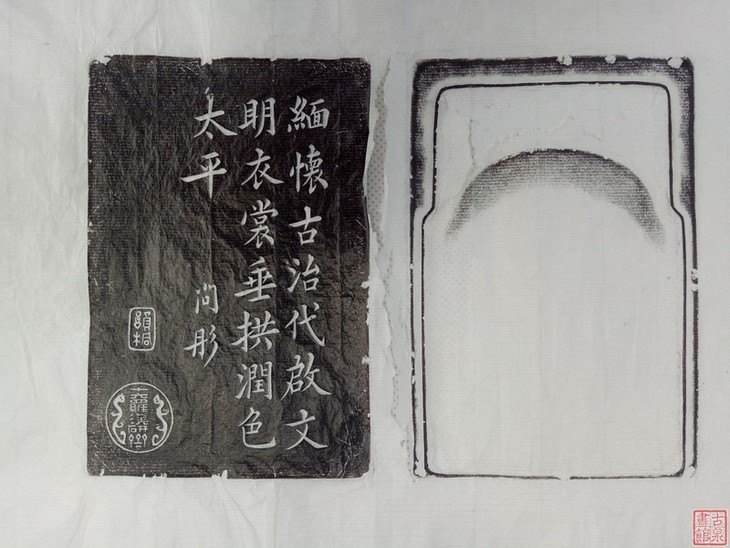 緬懷古治代啟文
明衣裳垂拱潤色
太平
尚彤
韻桐
古泉書館